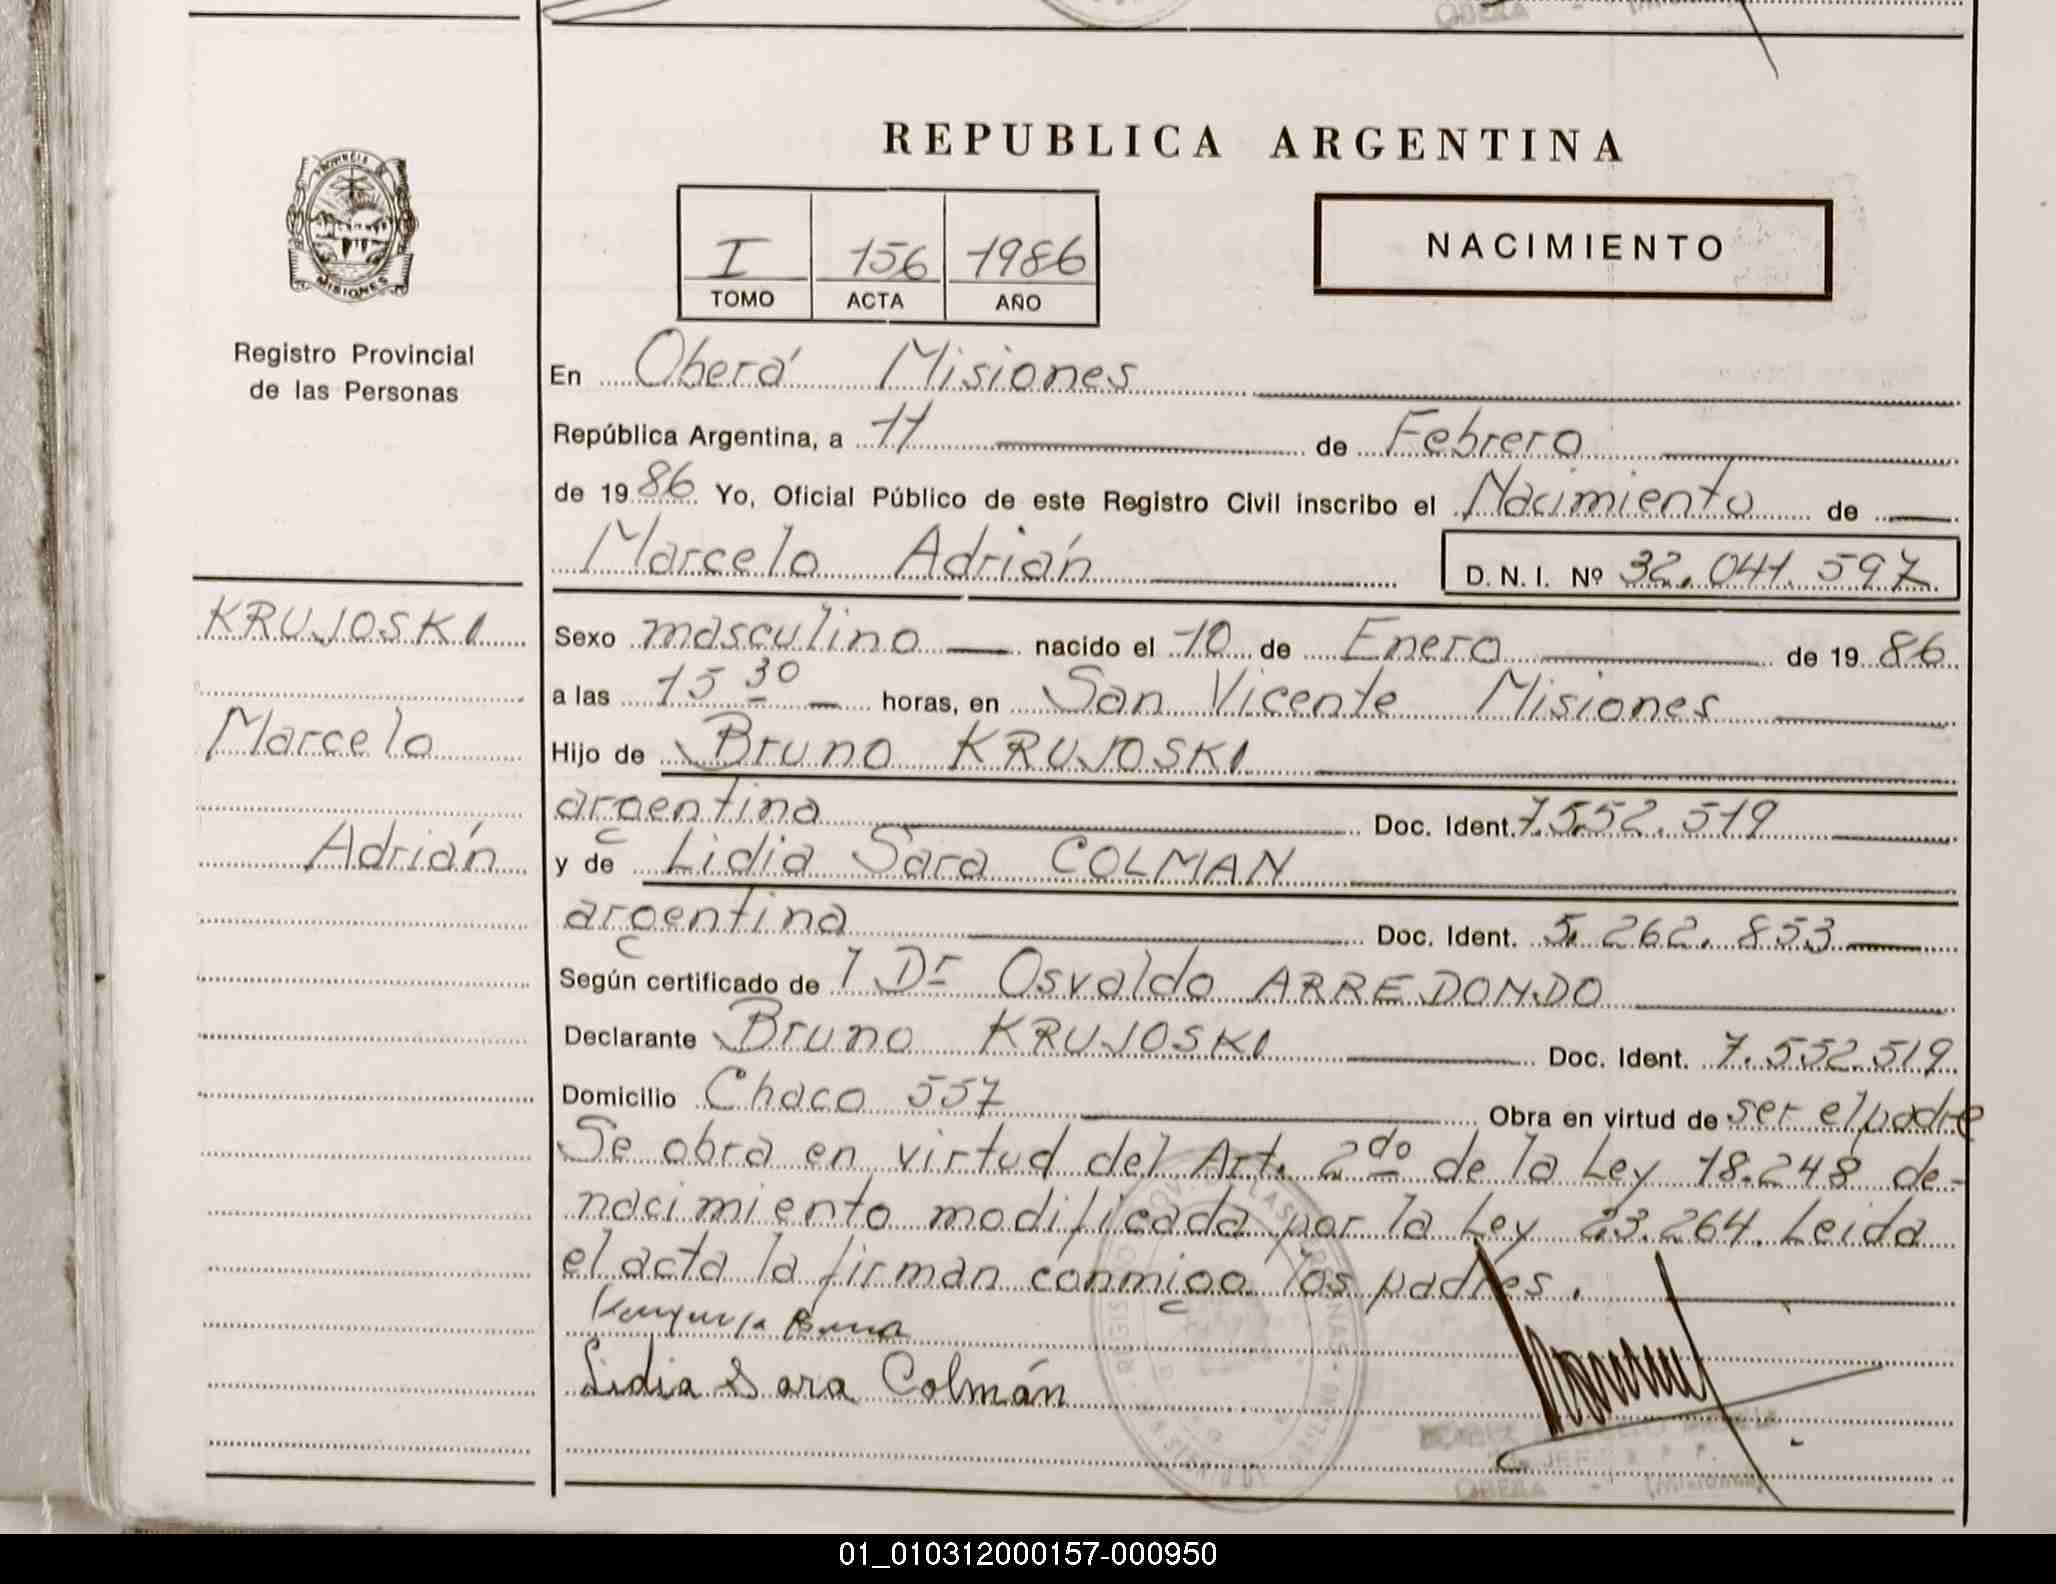 REPUBLICA ARGENTINA
I 156 1986
TOMO ACTA AÑO
NACIMIENTO
MISIONES
Registro Provincial
de las Personas
KRUJOSKI
Marcelo
Adrián
En Oberá Misiones
República Argentina, a 11 de Febrero
de 1986 Yo, Oficial Público de este Registro Civil inscribo el Nacimiento de
Marcelo Adrián D. N. I. Nº 32.041.597
Sexo masculino nacido el 10 de Enero de 1986
a las 15 30 horas, en San Vicente Misiones
Hijo de Bruno KRUJOSKI
argentina Doc. Ident. 7.552.519
y de Lidia Sara COLMAN
argentina Doc. Ident. 5.262.853
Según certificado de 1 Dr Osvaldo ARREDONDO
Declarante Bruno KRUJOSKI Doc. Ident. 7.552.519
Domicilio Chaco 557 Obra en virtud de ser el padre
Se obra en virtud del Art. 2do de la Ley 18.248 de-
nacimiento modificada por la Ley 23.264. Leida
el acta la firman conmigo los padres.
Lidia Sara Colmán
OBERA - (Misiones)
01_010312000157-000950